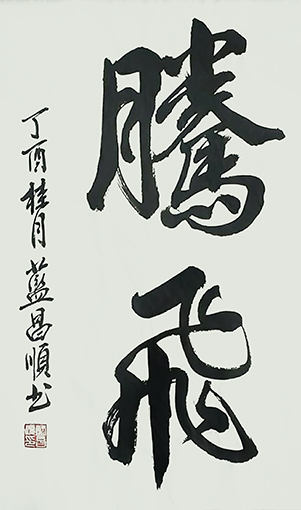 騰飛
丁酉桂月藍昌順书